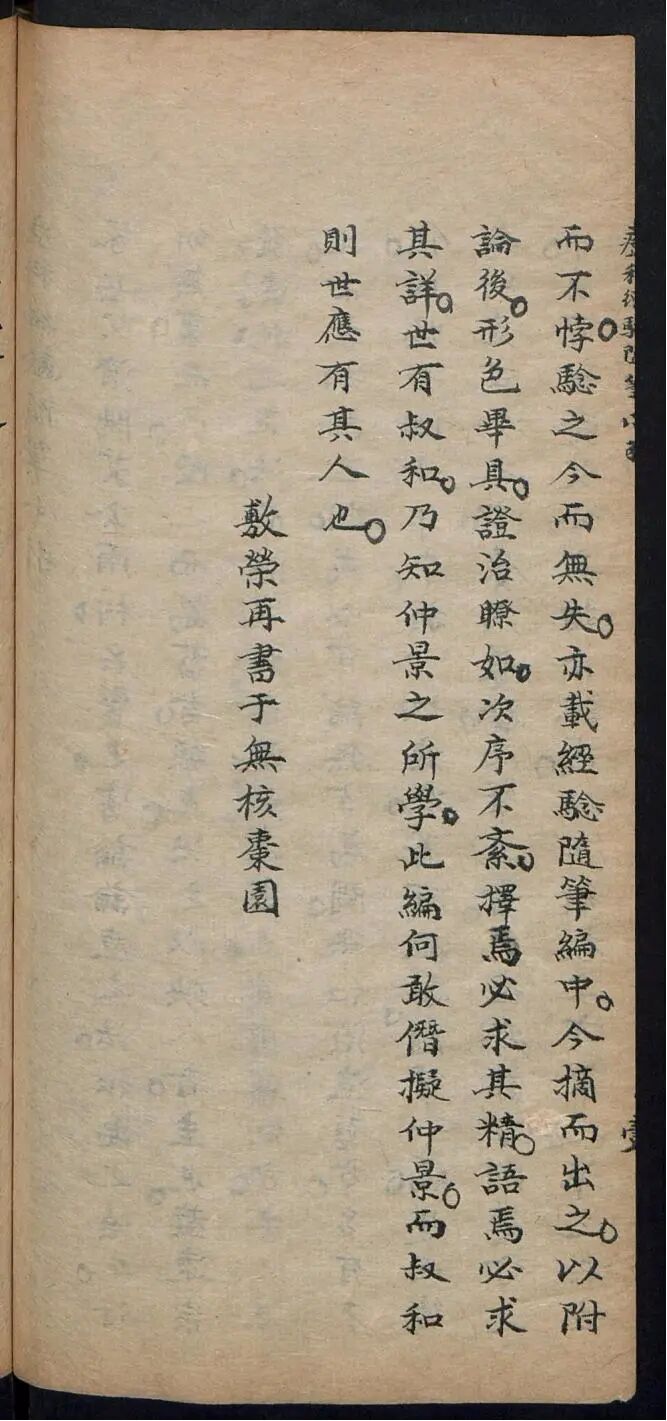 而不悖。驗之今而無失。亦載經驗隨筆編中。今摘而出之。以附
論後。形色畢具。證治瞭如。次序不紊。擇焉必求其精。語焉必求
其詳。世有叔和。乃知仲景之所學。此編何敢僭擬仲景。而叔和
則世應有其人也。
敷榮再書于無核棗園